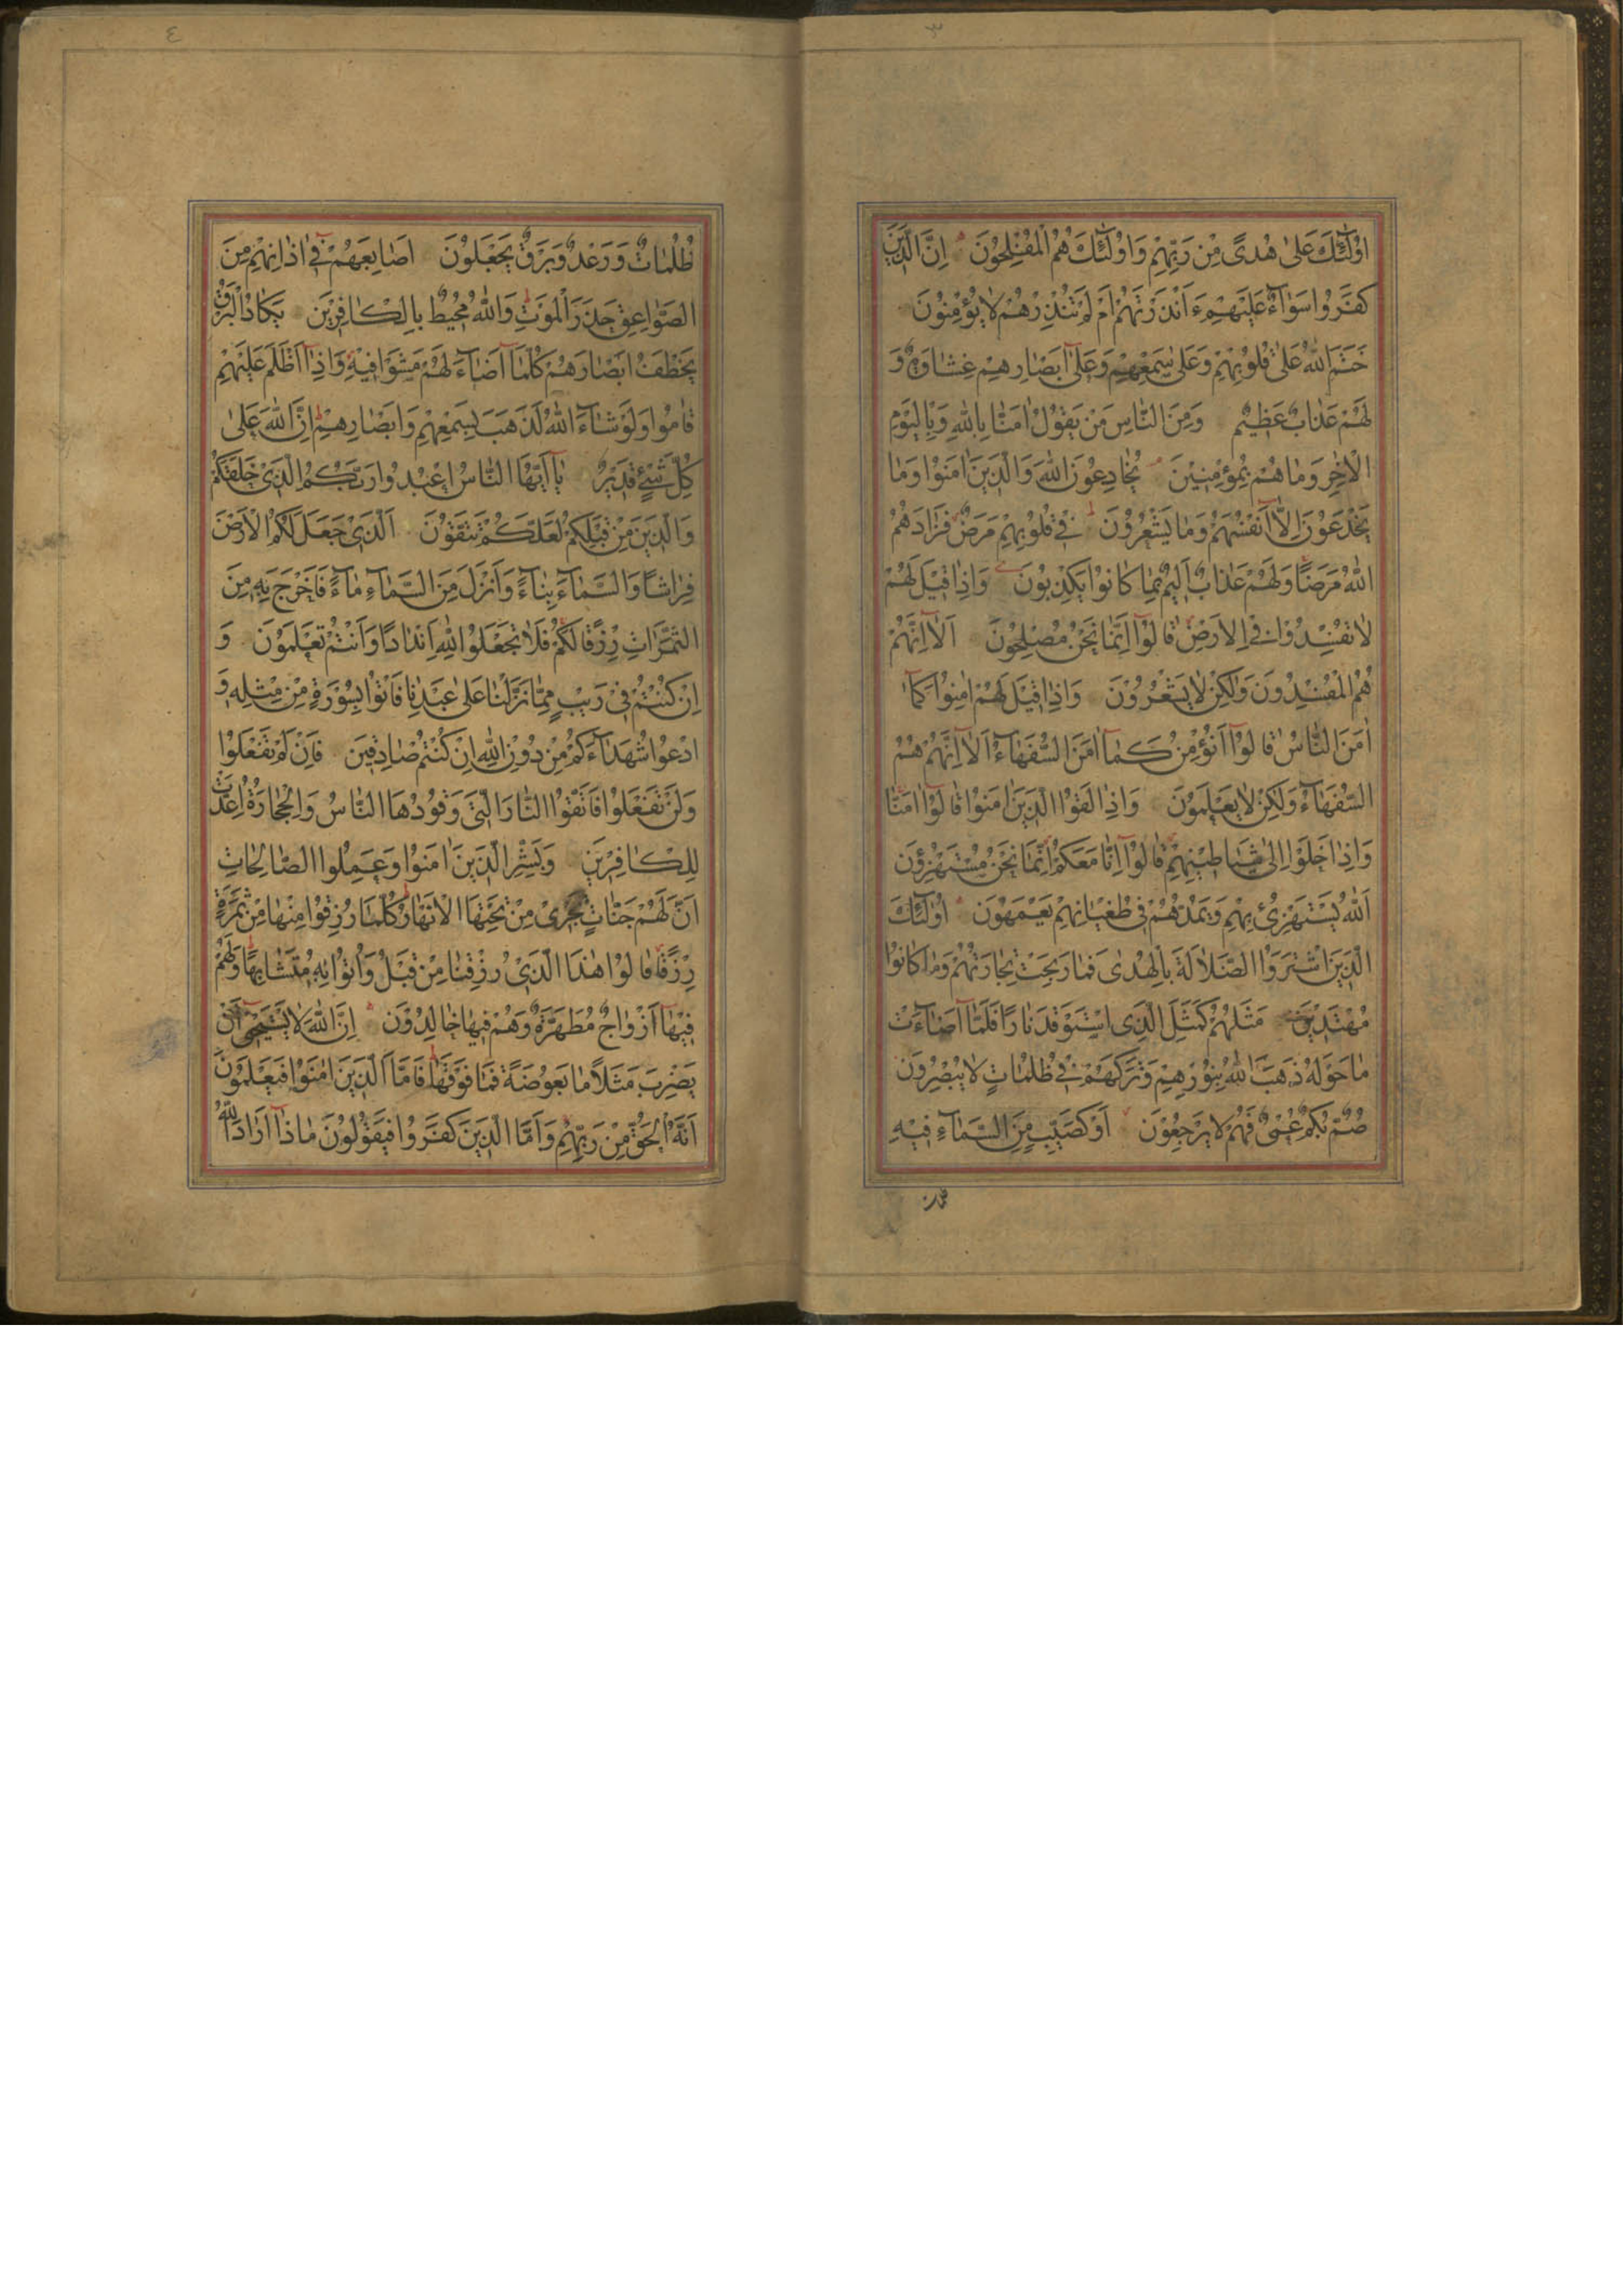 ٣
اُولٰٓئِكَ عَلىٰ هُدًى مِنْ رَبِّهِمْ وَاُولٰٓئِكَ هُمُ الْمُفْلِحُونَ اِنَّ الَّذِينَ
كَفَرُوا سَوَآءٌ عَلَيْهِمْ ءَاَنْذَرْتَهُمْ اَمْ لَمْ تُنْذِرْهُمْ لَا يُؤْمِنُونَ
خَتَمَ اللّٰهُ عَلىٰ قُلُوبِهِمْ وَعَلىٰ سَمْعِهِمْ وَعَلىٰٓ اَبْصَارِهِمْ غِشَاوَةٌ وَ
لَهُمْ عَذَابٌ عَظِيمٌ وَمِنَ النَّاسِ مَنْ يَقُولُ اٰمَنَّا بِاللّٰهِ وَبِالْيَوْمِ
الْاٰخِرِ وَمَا هُمْ بِمُؤْمِنِينَ يُخَادِعُونَ اللّٰهَ وَالَّذِينَ اٰمَنُوا وَمَا
يَخْدَعُونَ اِلَّآ اَنْفُسَهُمْ وَمَا يَشْعُرُونَ فِي قُلُوبِهِمْ مَرَضٌ فَزَادَهُمُ
اللّٰهُ مَرَضًا وَلَهُمْ عَذَابٌ اَلِيمٌ بِمَا كَانُوا يَكْذِبُونَ وَاِذَا قِيلَ لَهُمْ
لَا تُفْسِدُوا فِي الْاَرْضِ قَالُوٓا اِنَّمَا نَحْنُ مُصْلِحُونَ اَلَآ اِنَّهُمْ
هُمُ الْمُفْسِدُونَ وَلٰكِنْ لَا يَشْعُرُونَ وَاِذَا قِيلَ لَهُمْ اٰمِنُوا كَمَآ
اٰمَنَ النَّاسُ قَالُوٓا اَنُؤْمِنُ كَمَآ اٰمَنَ السُّفَهَآءُ اَلَآ اِنَّهُمْ هُمُ
السُّفَهَآءُ وَلٰكِنْ لَا يَعْلَمُونَ وَاِذَا لَقُوا الَّذِينَ اٰمَنُوا قَالُوٓا اٰمَنَّا
وَاِذَا خَلَوْا اِلىٰ شَيَاطِينِهِمْ قَالُوٓا اِنَّا مَعَكُمْ اِنَّمَا نَحْنُ مُسْتَهْزِؤُنَ
اَللّٰهُ يَسْتَهْزِئُ بِهِمْ وَيَمُدُّهُمْ فِي طُغْيَانِهِمْ يَعْمَهُونَ اُولٰٓئِكَ
الَّذِينَ اشْتَرَوُا الضَّلَالَةَ بِالْهُدىٰ فَمَا رَبِحَتْ تِجَارَتُهُمْ وَمَا كَانُوا
مُهْتَدِينَ مَثَلُهُمْ كَمَثَلِ الَّذِي اسْتَوْقَدَ نَارًا فَلَمَّآ اَضَآءَتْ
مَا حَوْلَهُ ذَهَبَ اللّٰهُ بِنُورِهِمْ وَتَرَكَهُمْ فِي ظُلُمَاتٍ لَا يُبْصِرُونَ
صُمٌّ بُكْمٌ عُمْيٌ فَهُمْ لَا يَرْجِعُونَ اَوْ كَصَيِّبٍ مِنَ السَّمَآءِ فِيهِ
٤
ظُلُمَاتٌ وَرَعْدٌ وَبَرْقٌ يَجْعَلُونَ اَصَابِعَهُمْ فِيٓ اٰذَانِهِمْ مِنَ
الصَّوَاعِقِ حَذَرَ الْمَوْتِ وَاللّٰهُ مُحِيطٌ بِالْكَافِرِينَ يَكَادُ الْبَرْقُ
يَخْطَفُ اَبْصَارَهُمْ كُلَّمَآ اَضَآءَ لَهُمْ مَشَوْا فِيهِ وَاِذَآ اَظْلَمَ عَلَيْهِمْ
قَامُوا وَلَوْ شَآءَ اللّٰهُ لَذَهَبَ بِسَمْعِهِمْ وَاَبْصَارِهِمْ اِنَّ اللّٰهَ عَلىٰ
كُلِّ شَيْءٍ قَدِيرٌ يَآ اَيُّهَا النَّاسُ اعْبُدُوا رَبَّكُمُ الَّذِي خَلَقَكُمْ
وَالَّذِينَ مِنْ قَبْلِكُمْ لَعَلَّكُمْ تَتَّقُونَ اَلَّذِي جَعَلَ لَكُمُ الْاَرْضَ
فِرَاشًا وَالسَّمَآءَ بِنَآءً وَاَنْزَلَ مِنَ السَّمَآءِ مَآءً فَاَخْرَجَ بِهِ مِنَ
الثَّمَرَاتِ رِزْقًا لَكُمْ فَلَا تَجْعَلُوا لِلّٰهِ اَنْدَادًا وَاَنْتُمْ تَعْلَمُونَ وَ
اِنْ كُنْتُمْ فِي رَيْبٍ مِمَّا نَزَّلْنَا عَلىٰ عَبْدِنَا فَاْتُوا بِسُورَةٍ مِنْ مِثْلِهِ وَ
ادْعُوا شُهَدَآءَكُمْ مِنْ دُونِ اللّٰهِ اِنْ كُنْتُمْ صَادِقِينَ فَاِنْ لَمْ تَفْعَلُوا
وَلَنْ تَفْعَلُوا فَاتَّقُوا النَّارَ الَّتِي وَقُودُهَا النَّاسُ وَالْحِجَارَةُ اُعِدَّتْ
لِلْكَافِرِينَ وَبَشِّرِ الَّذِينَ اٰمَنُوا وَعَمِلُوا الصَّالِحَاتِ
اَنَّ لَهُمْ جَنَّاتٍ تَجْرِي مِنْ تَحْتِهَا الْاَنْهَارُ كُلَّمَا رُزِقُوا مِنْهَا مِنْ ثَمَرَةٍ
رِزْقًا قَالُوا هٰذَا الَّذِي رُزِقْنَا مِنْ قَبْلُ وَاُتُوا بِهِ مُتَشَابِهًا وَلَهُمْ
فِيهَآ اَزْوَاجٌ مُطَهَّرَةٌ وَهُمْ فِيهَا خَالِدُونَ اِنَّ اللّٰهَ لَا يَسْتَحْيِٓي اَنْ
يَضْرِبَ مَثَلًا مَا بَعُوضَةً فَمَا فَوْقَهَا فَاَمَّا الَّذِينَ اٰمَنُوا فَيَعْلَمُونَ
اَنَّهُ الْحَقُّ مِنْ رَبِّهِمْ وَاَمَّا الَّذِينَ كَفَرُوا فَيَقُولُونَ مَاذَآ اَرَادَ اللّٰهُ